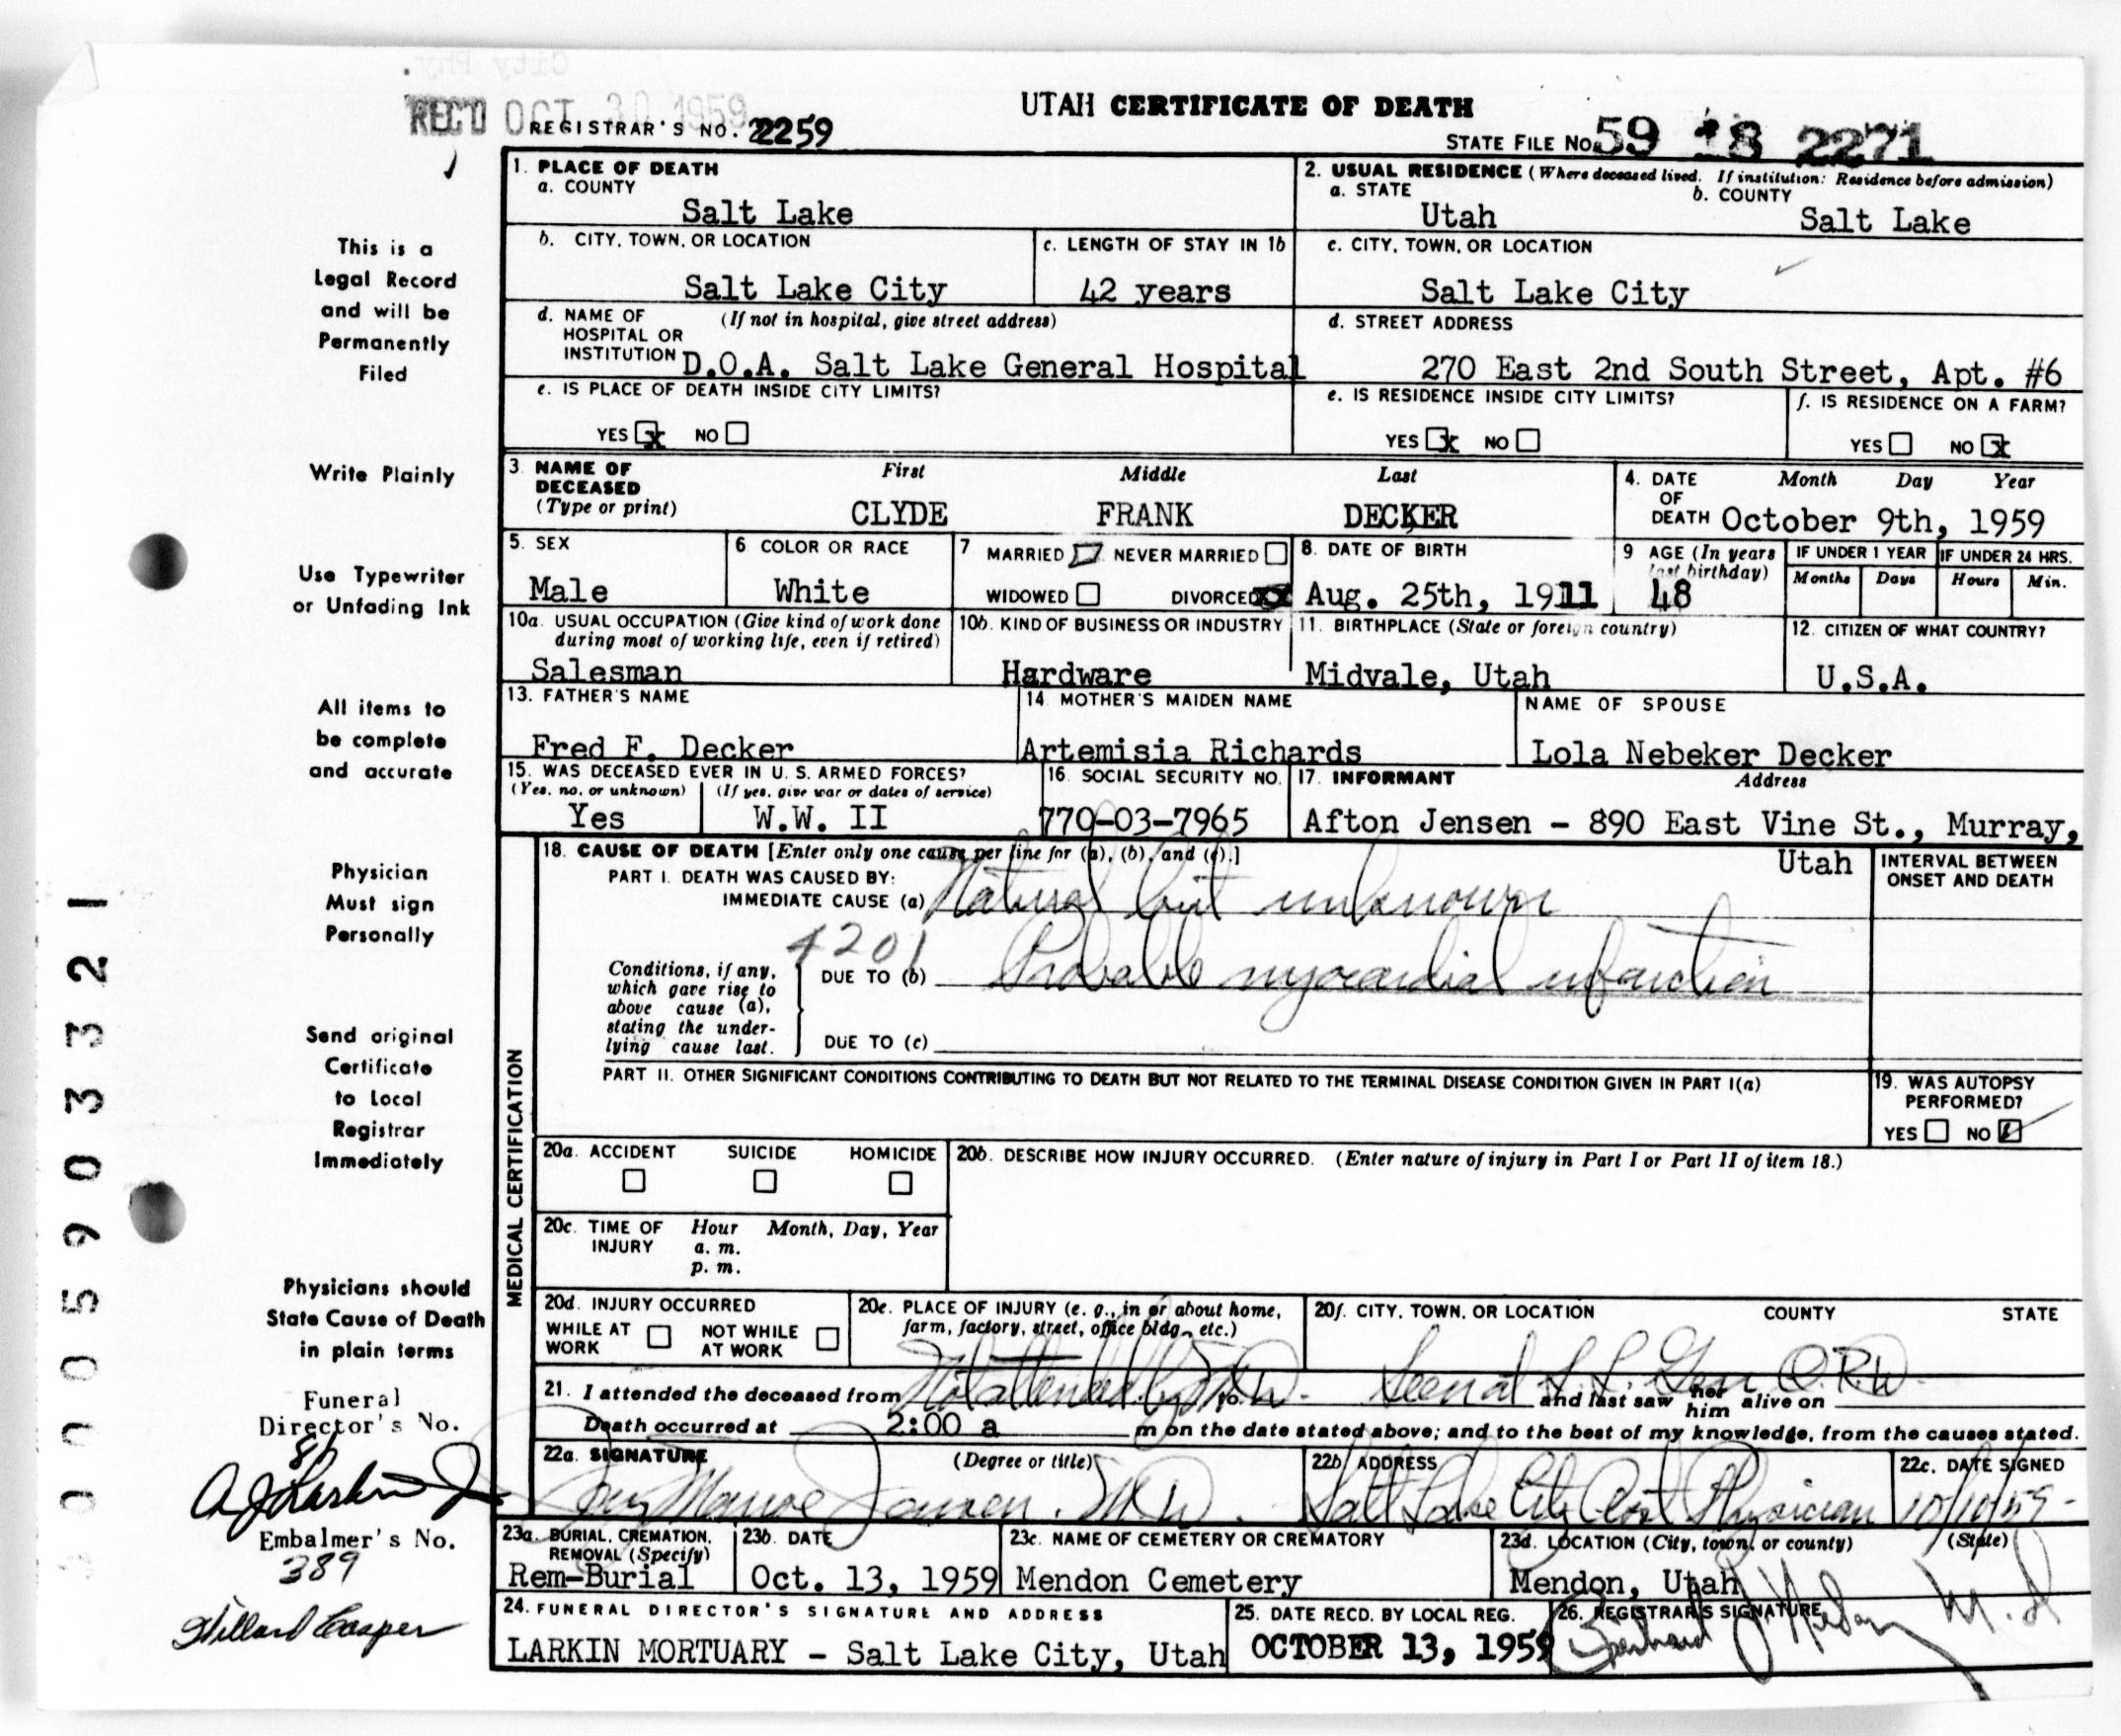 City Phy.
REC'D OCT 30 1959
REGISTRAR'S NO. 2259
UTAH CERTIFICATE OF DEATH
STATE FILE NO. 59 18 2271
1. PLACE OF DEATH
a. COUNTY
Salt Lake
2. USUAL RESIDENCE (Where deceased lived. If institution: Residence before admission)
a. STATE
Utah
b. COUNTY
Salt Lake
b. CITY, TOWN, OR LOCATION
Salt Lake City
c. LENGTH OF STAY IN 1b
42 years
c. CITY, TOWN, OR LOCATION
Salt Lake City
d. NAME OF HOSPITAL OR INSTITUTION (If not in hospital, give street address)
D.O.A. Salt Lake General Hospital
d. STREET ADDRESS
270 East 2nd South Street, Apt. #6
e. IS PLACE OF DEATH INSIDE CITY LIMITS?
YES x NO
e. IS RESIDENCE INSIDE CITY LIMITS?
YES x NO
f. IS RESIDENCE ON A FARM?
YES NO x
3. NAME OF DECEASED (Type or print)
First Middle Last
CLYDE FRANK DECKER
4. DATE OF DEATH
Month Day Year
October 9th, 1959
5. SEX
Male
6 COLOR OR RACE
White
7 MARRIED NEVER MARRIED
WIDOWED DIVORCED xx
8. DATE OF BIRTH
Aug. 25th, 1911
9 AGE (In years last birthday)
48
IF UNDER 1 YEAR
Months Days
IF UNDER 24 HRS.
Hours Min.
10a. USUAL OCCUPATION (Give kind of work done during most of working life, even if retired)
Salesman
10b. KIND OF BUSINESS OR INDUSTRY
Hardware
11. BIRTHPLACE (State or foreign country)
Midvale, Utah
12. CITIZEN OF WHAT COUNTRY?
U.S.A.
13. FATHER'S NAME
Fred F. Decker
14. MOTHER'S MAIDEN NAME
Artemisia Richards
NAME OF SPOUSE
Lola Nebeker Decker
15. WAS DECEASED EVER IN U. S. ARMED FORCES?
(Yes, no, or unknown) (If yes, give war or dates of service)
Yes W.W. II
16. SOCIAL SECURITY NO.
770-03-7965
17. INFORMANT Address
Afton Jensen - 890 East Vine St., Murray,
Utah
18. CAUSE OF DEATH [Enter only one cause per line for (a), (b), and (c).]
PART I. DEATH WAS CAUSED BY:
IMMEDIATE CAUSE (a) Natural but unknown
4201
Conditions, if any, which gave rise to above cause (a), stating the underlying cause last.
DUE TO (b) Probable myocardial infarction
DUE TO (c)
INTERVAL BETWEEN ONSET AND DEATH
PART II. OTHER SIGNIFICANT CONDITIONS CONTRIBUTING TO DEATH BUT NOT RELATED TO THE TERMINAL DISEASE CONDITION GIVEN IN PART I(a)
19. WAS AUTOPSY PERFORMED?
YES NO
MEDICAL CERTIFICATION
20a. ACCIDENT SUICIDE HOMICIDE
20b. DESCRIBE HOW INJURY OCCURRED. (Enter nature of injury in Part I or Part II of item 18.)
20c. TIME OF INJURY
Hour Month, Day, Year
a. m.
p. m.
20d. INJURY OCCURRED
WHILE AT WORK NOT WHILE AT WORK
20e. PLACE OF INJURY (e. g., in or about home, farm, factory, street, office bldg., etc.)
20f. CITY, TOWN, OR LOCATION COUNTY STATE
21. I attended the deceased from Not attended by M.D. to Seen at S. L. Gen and last saw her him alive on
Death occurred at 2:00 a m on the date stated above; and to the best of my knowledge, from the causes stated.
22a. SIGNATURE (Degree or title)
M.D.
22b. ADDRESS
Salt Lake City Physician
22c. DATE SIGNED
10/10/59
23a. BURIAL, CREMATION, REMOVAL (Specify)
Rem-Burial
23b. DATE
Oct. 13, 1959
23c. NAME OF CEMETERY OR CREMATORY
Mendon Cemetery
23d. LOCATION (City, town, or county) (State)
Mendon, Utah
24. FUNERAL DIRECTOR'S SIGNATURE AND ADDRESS
LARKIN MORTUARY - Salt Lake City, Utah
25. DATE RECD. BY LOCAL REG.
OCTOBER 13, 1959
26. REGISTRAR'S SIGNATURE
This is a
Legal Record
and will be
Permanently
Filed
Write Plainly
Use Typewriter
or Unfading Ink
All items to
be complete
and accurate
Physician
Must sign
Personally
Send original
Certificate
to Local
Registrar
Immediately
Physicians should
State Cause of Death
in plain terms
Funeral
Director's No.
86
A J Larkin Jr
Embalmer's No.
389
Willard Casper
0005903321